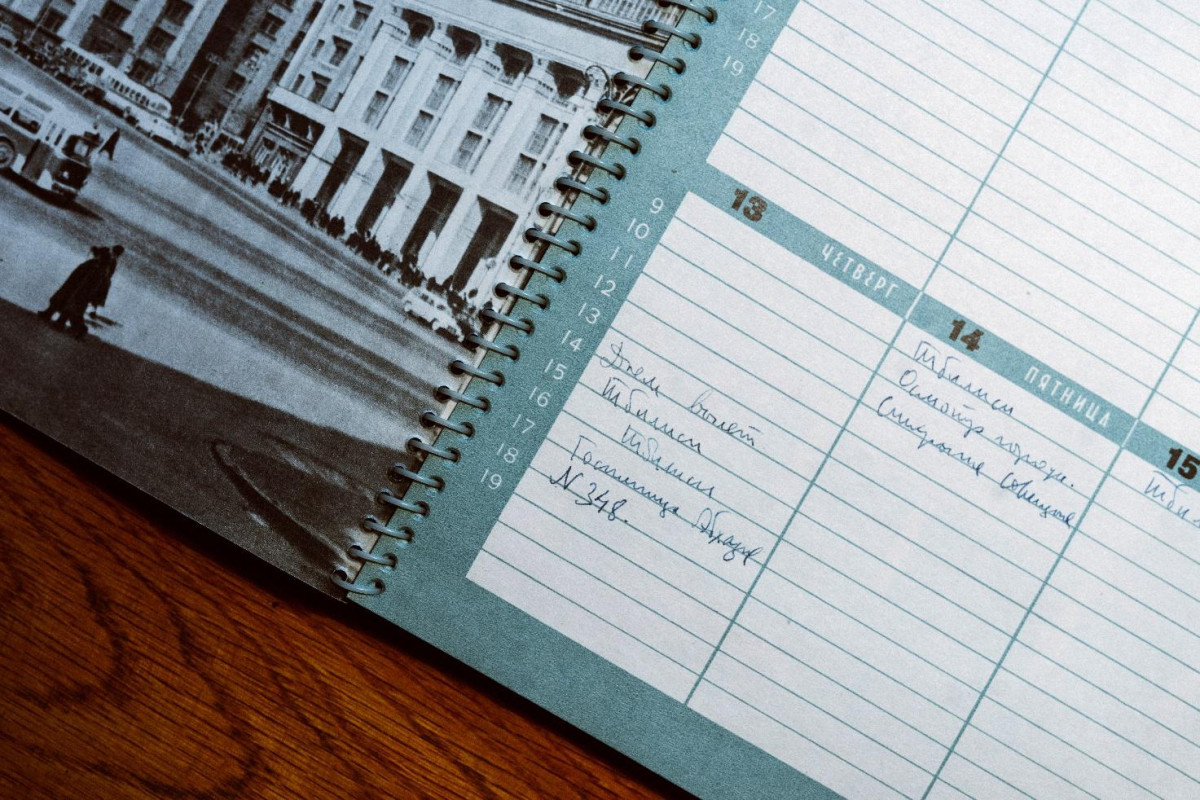 17
18
19
13 ЧЕТВЕРГ
9
10
11
12
13
14
15
16
17
18
19
Днем вылет
Тбилиси
Тбилиси
Гостиница
N 348.
14 ПЯТНИЦА
Тбилиси
Осмотр города.
15
Тби